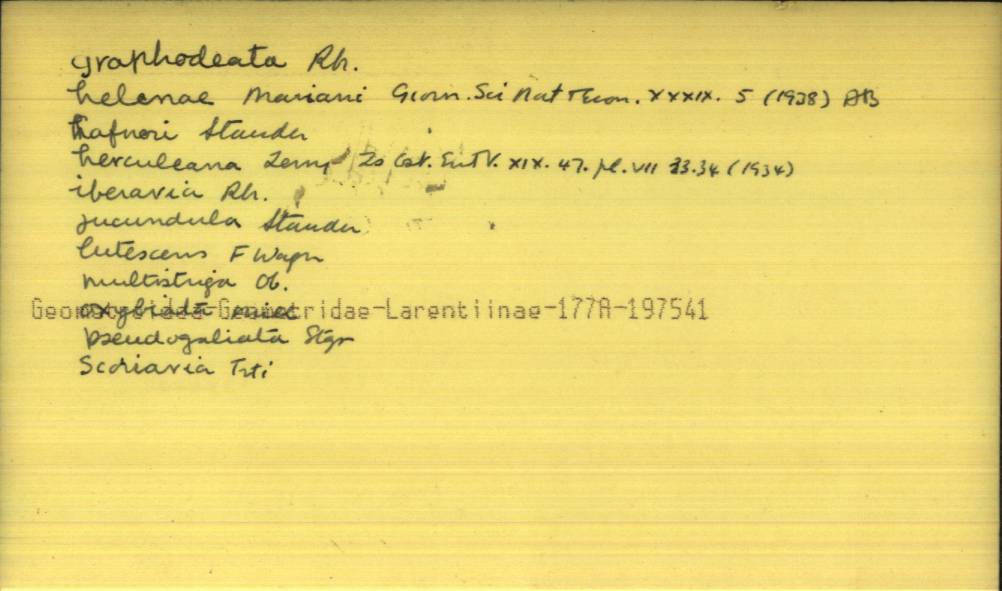 graphodeata Rh.
helenae Mariani Giorn. Sci Nat & Econ. XXXIX. 5 (1938) AB
hafneri Stauder
herculeana Zerny Zs Öst. Ent V. XIX. 47. pl. VII 33.34 (1934)
iberavia Rh.
jucundula Stauder
lutescens F Wagn
multistriga Ob.
Geometroidea-Geometridae-Larentiinae-177A-197541
oxybiata
pseudogaliata Stgr
Scoriaria Trti